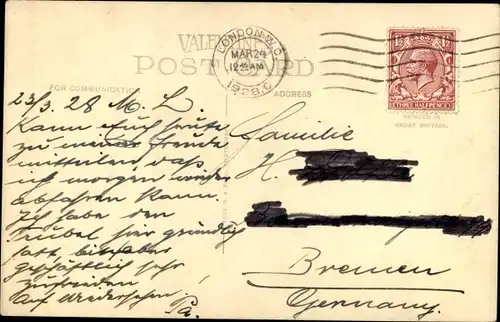 VALEN
POST CARD
FOR COMMUNICATION
ADDRESS
LONDON W.C.
MAR 24
12 AM
1928
THREE HALFPENCE
PRINTED IN
GREAT BRITAIN.
23/3. 28 M. L.
Kann Euch heute
zu meiner Freude
mitteilen daß
ich morgen wieder
abfahren kann.
Ich habe den
Trubel hier gründlich
satt, bin aber
geschäftlich sehr
zufrieden
Auf Wiedersehen.
Pa.
Familie
H.
Bremen
Germany.